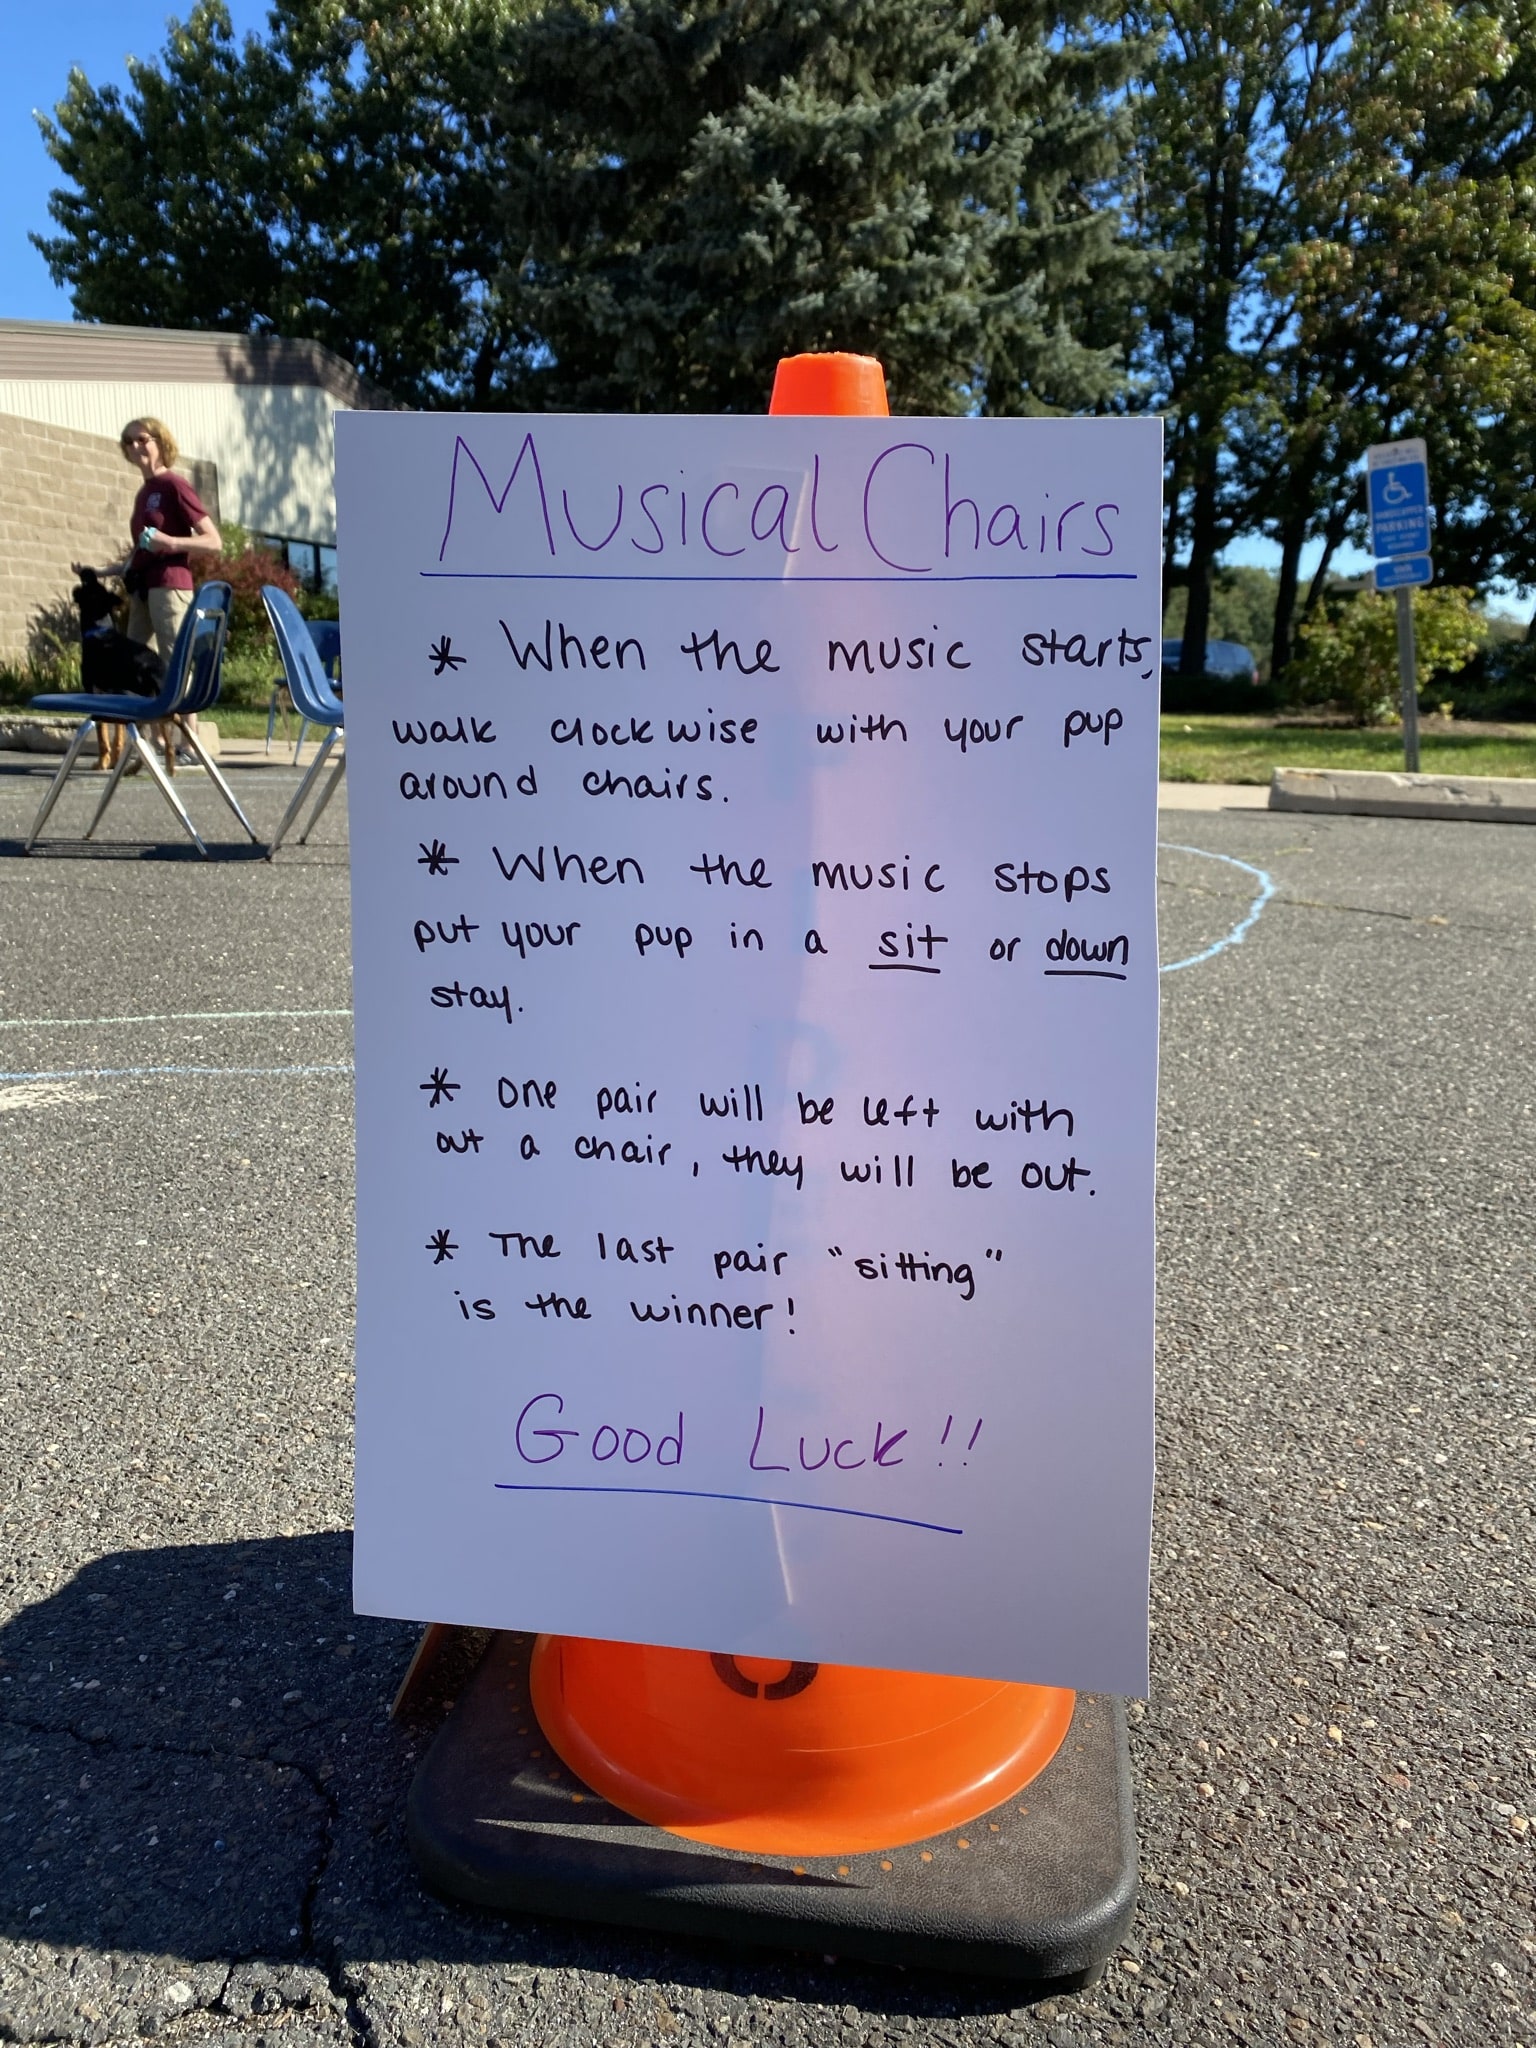 Musical Chairs
* When the music starts,
walk clockwise with your pup
around chairs.
* When the music stops
put your pup in a sit or down
stay.
* One pair will be left with
out a chair, they will be out.
* The last pair "sitting"
is the winner!
Good Luck!!
HANDICAPPED
PARKING